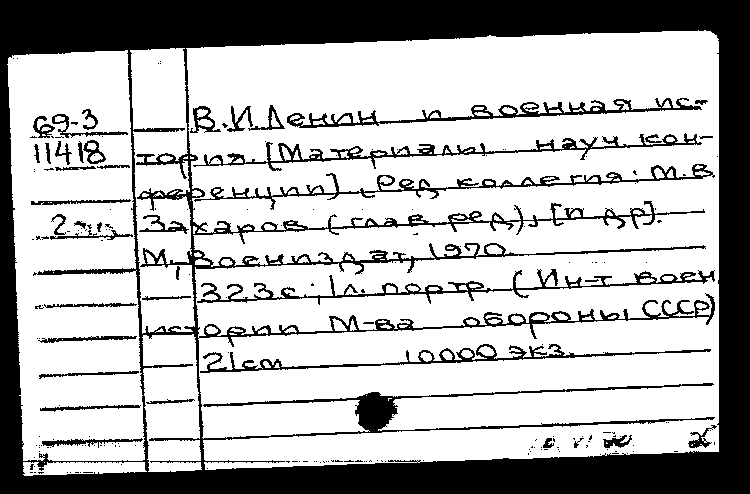 69-3
11418
2 экз
В.И. Ленин и военная ис-
тория. [Материалы науч. кон-
ференции]. Ред. коллегия: М.В.
Захаров (глав. ред.), [и др].
М., Воениздат, 1970.
323 с.; 1 л. портр. (Ин-т воен
истории М-ва обороны СССР)
21 см 10000 экз.